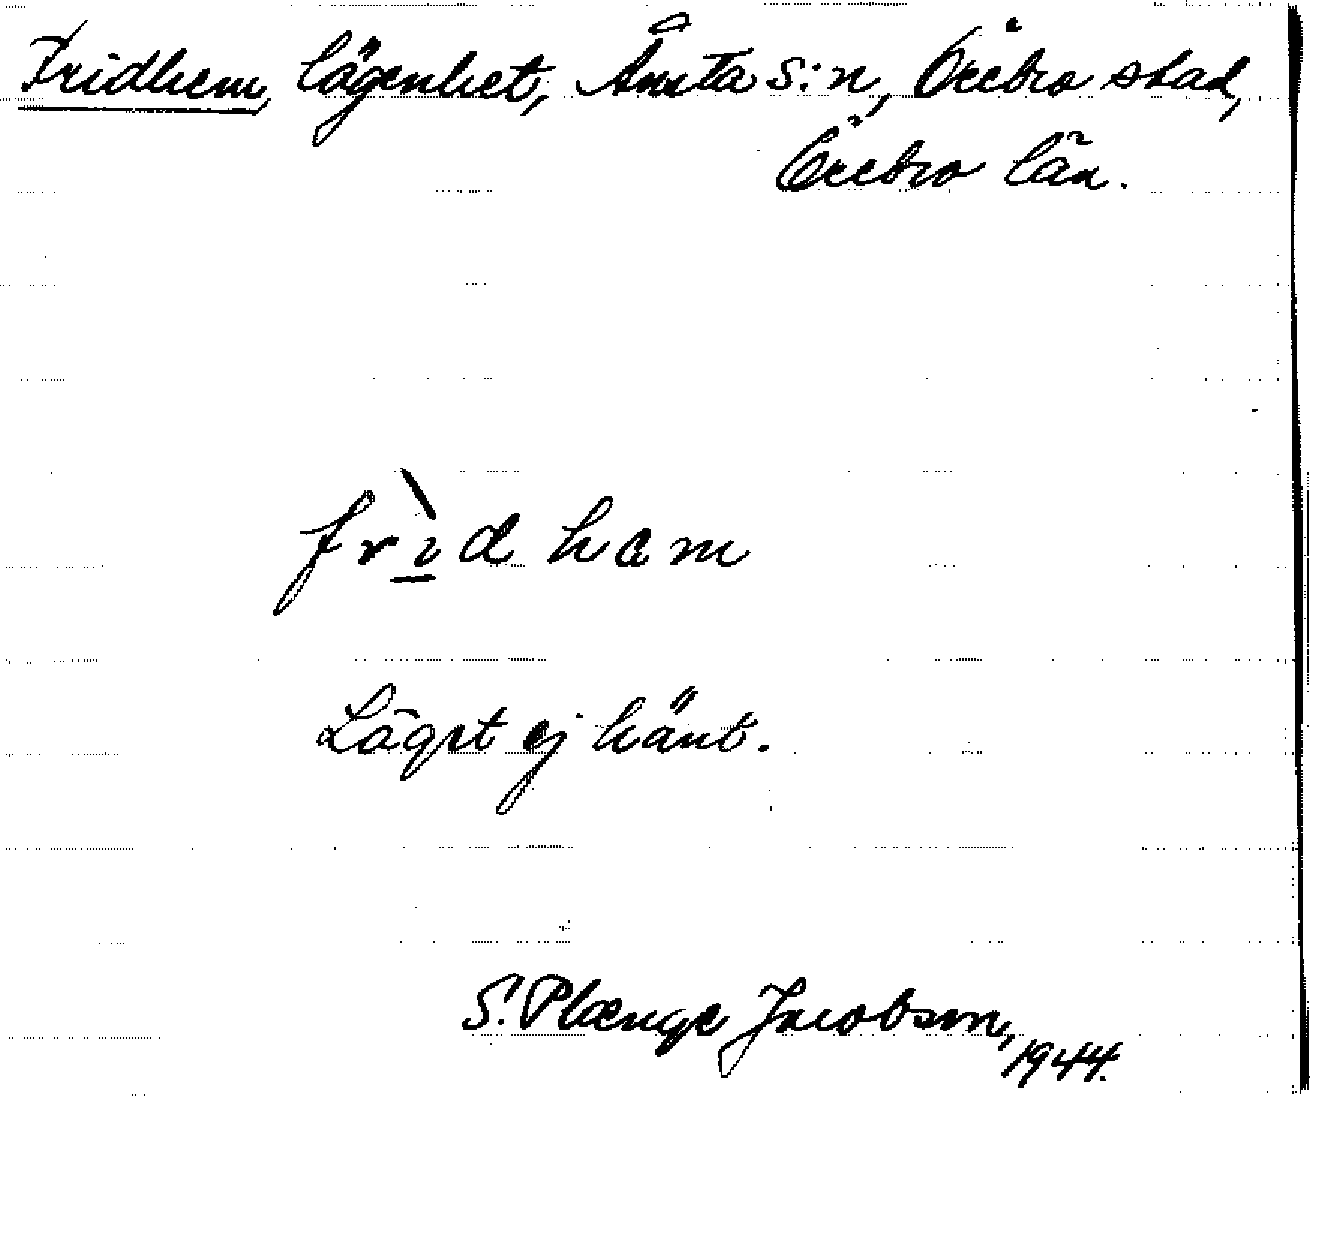 Fridhem, lägenhet, Ånsta s:n, Örebro stad,
Örebro län.
frìdhem
Läget ej känt.
S. Plænge Jacobson,
1944.